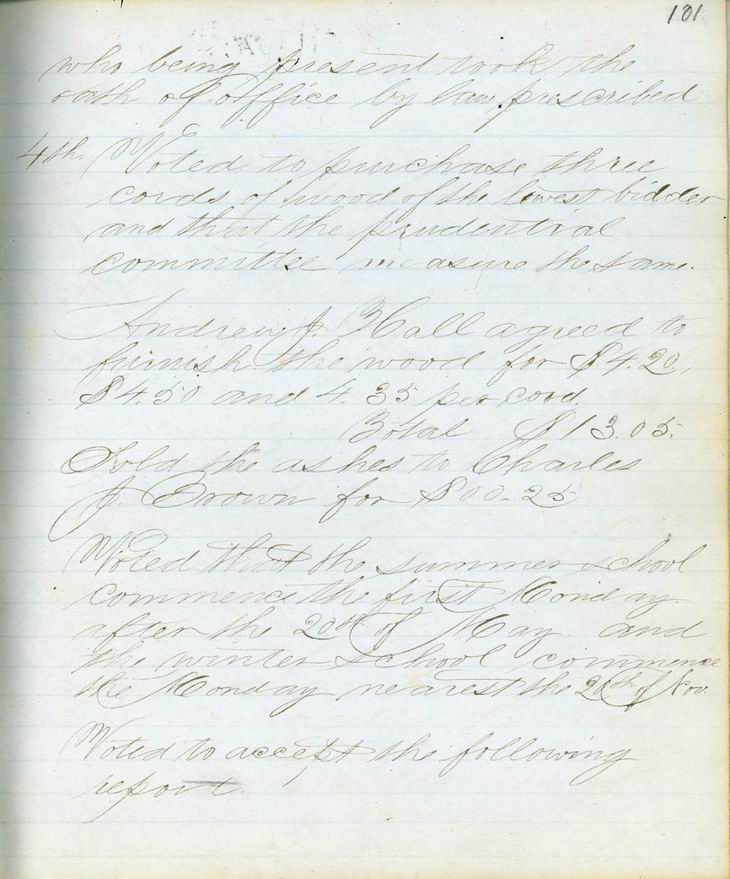 101
who being present took the
oath of office by law prescribed
4th. Voted to purchase three
cords of wood of the lowest bidder
and that the prudential
committee measure the same.
Andrew J. Hall agreed to
furnish the wood for $4.20,
$4.50 and 4.35 per cord.
Total $13.05.
Sold the ashes to Charles
J. Brown for $00.25
Voted that the summer school
commence the first Monday
after the 20th of May and
the winter school commence
the Monday nearest the 20th of Nov.
Voted to accept the following
report.